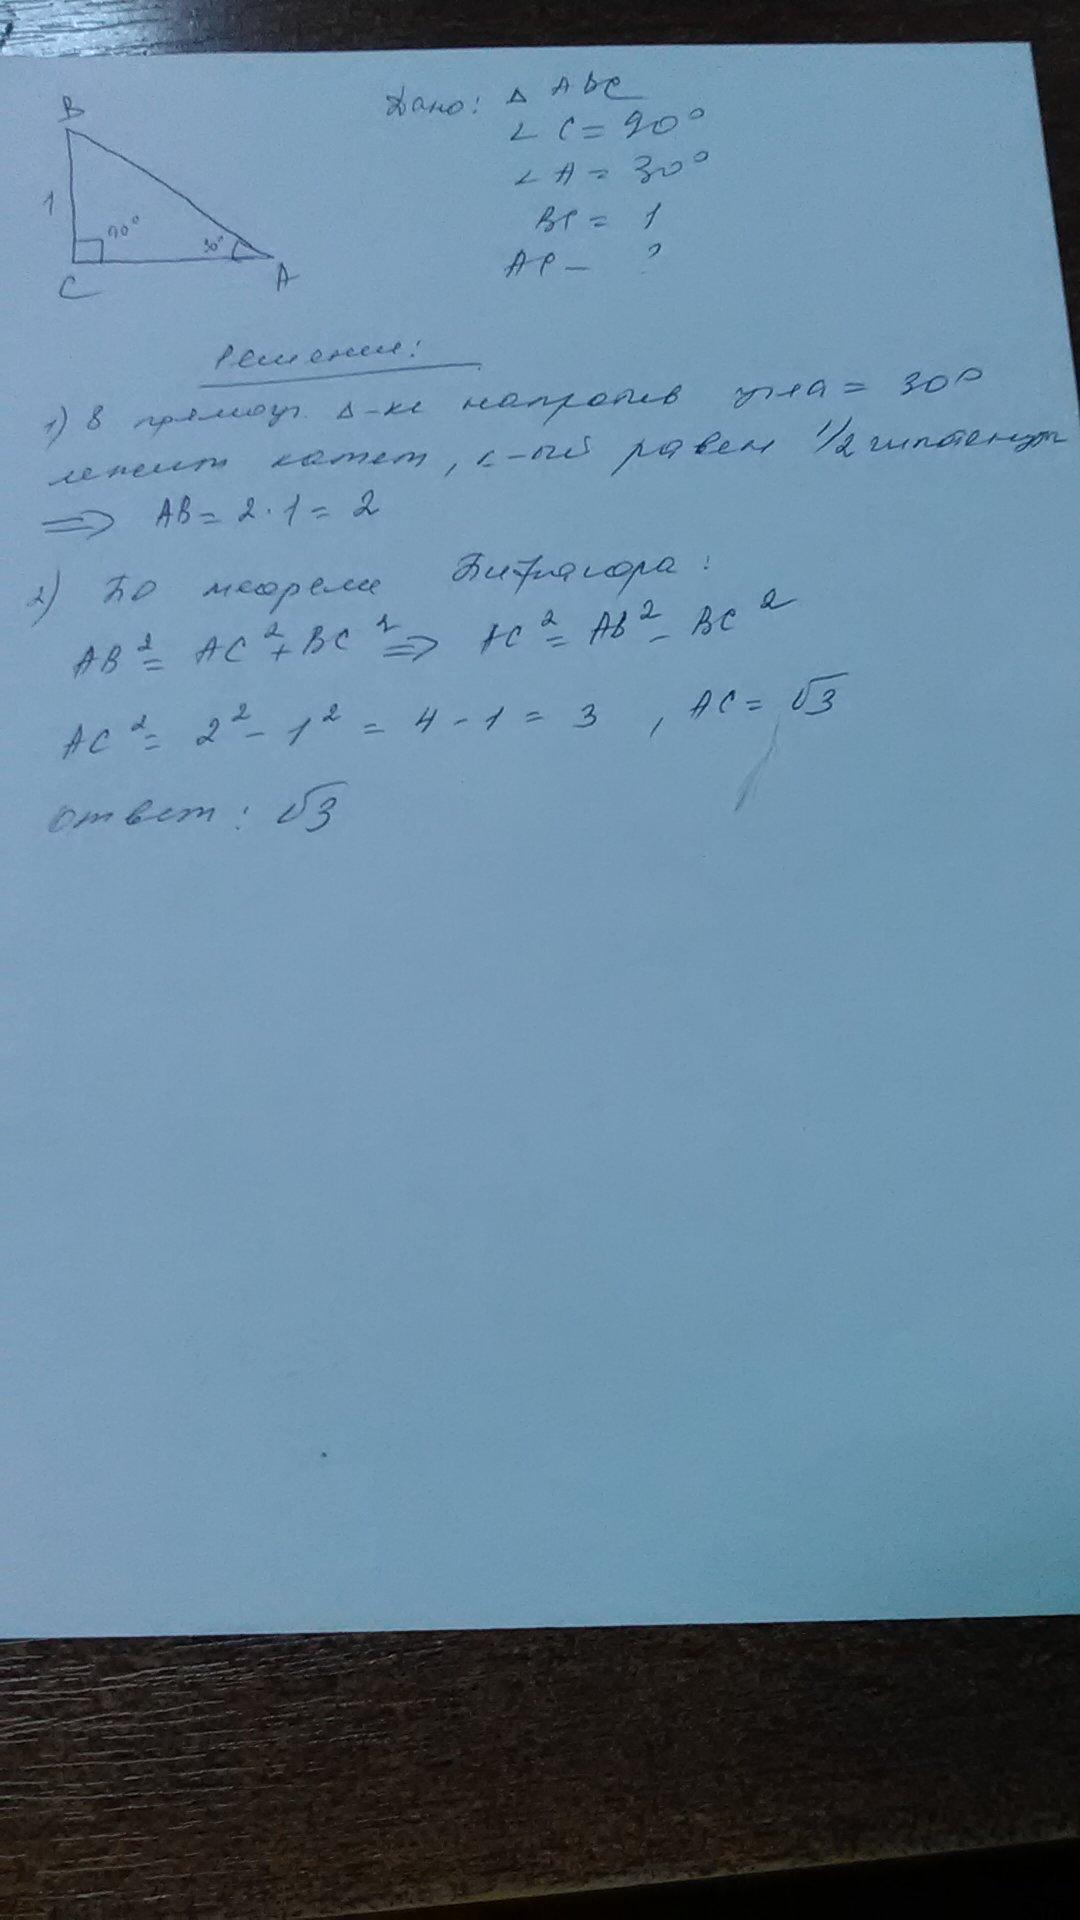 B
1
90°
30°
C
A
Дано: △ ABC
∠ C = 90°
∠ A = 30°
BC = 1
AC – ?
Решение:
1) В прямоуг. △-ке напротив угла = 30°
лежит катет, к-ый равен 1/2 гипотенузы
⇒ AB = 2 · 1 = 2
2) По теореме Пифагора:
AB² = AC² + BC² ⇒ AC² = AB² – BC²
AC² = 2² – 1² = 4 – 1 = 3 , AC = √3
Ответ: √3